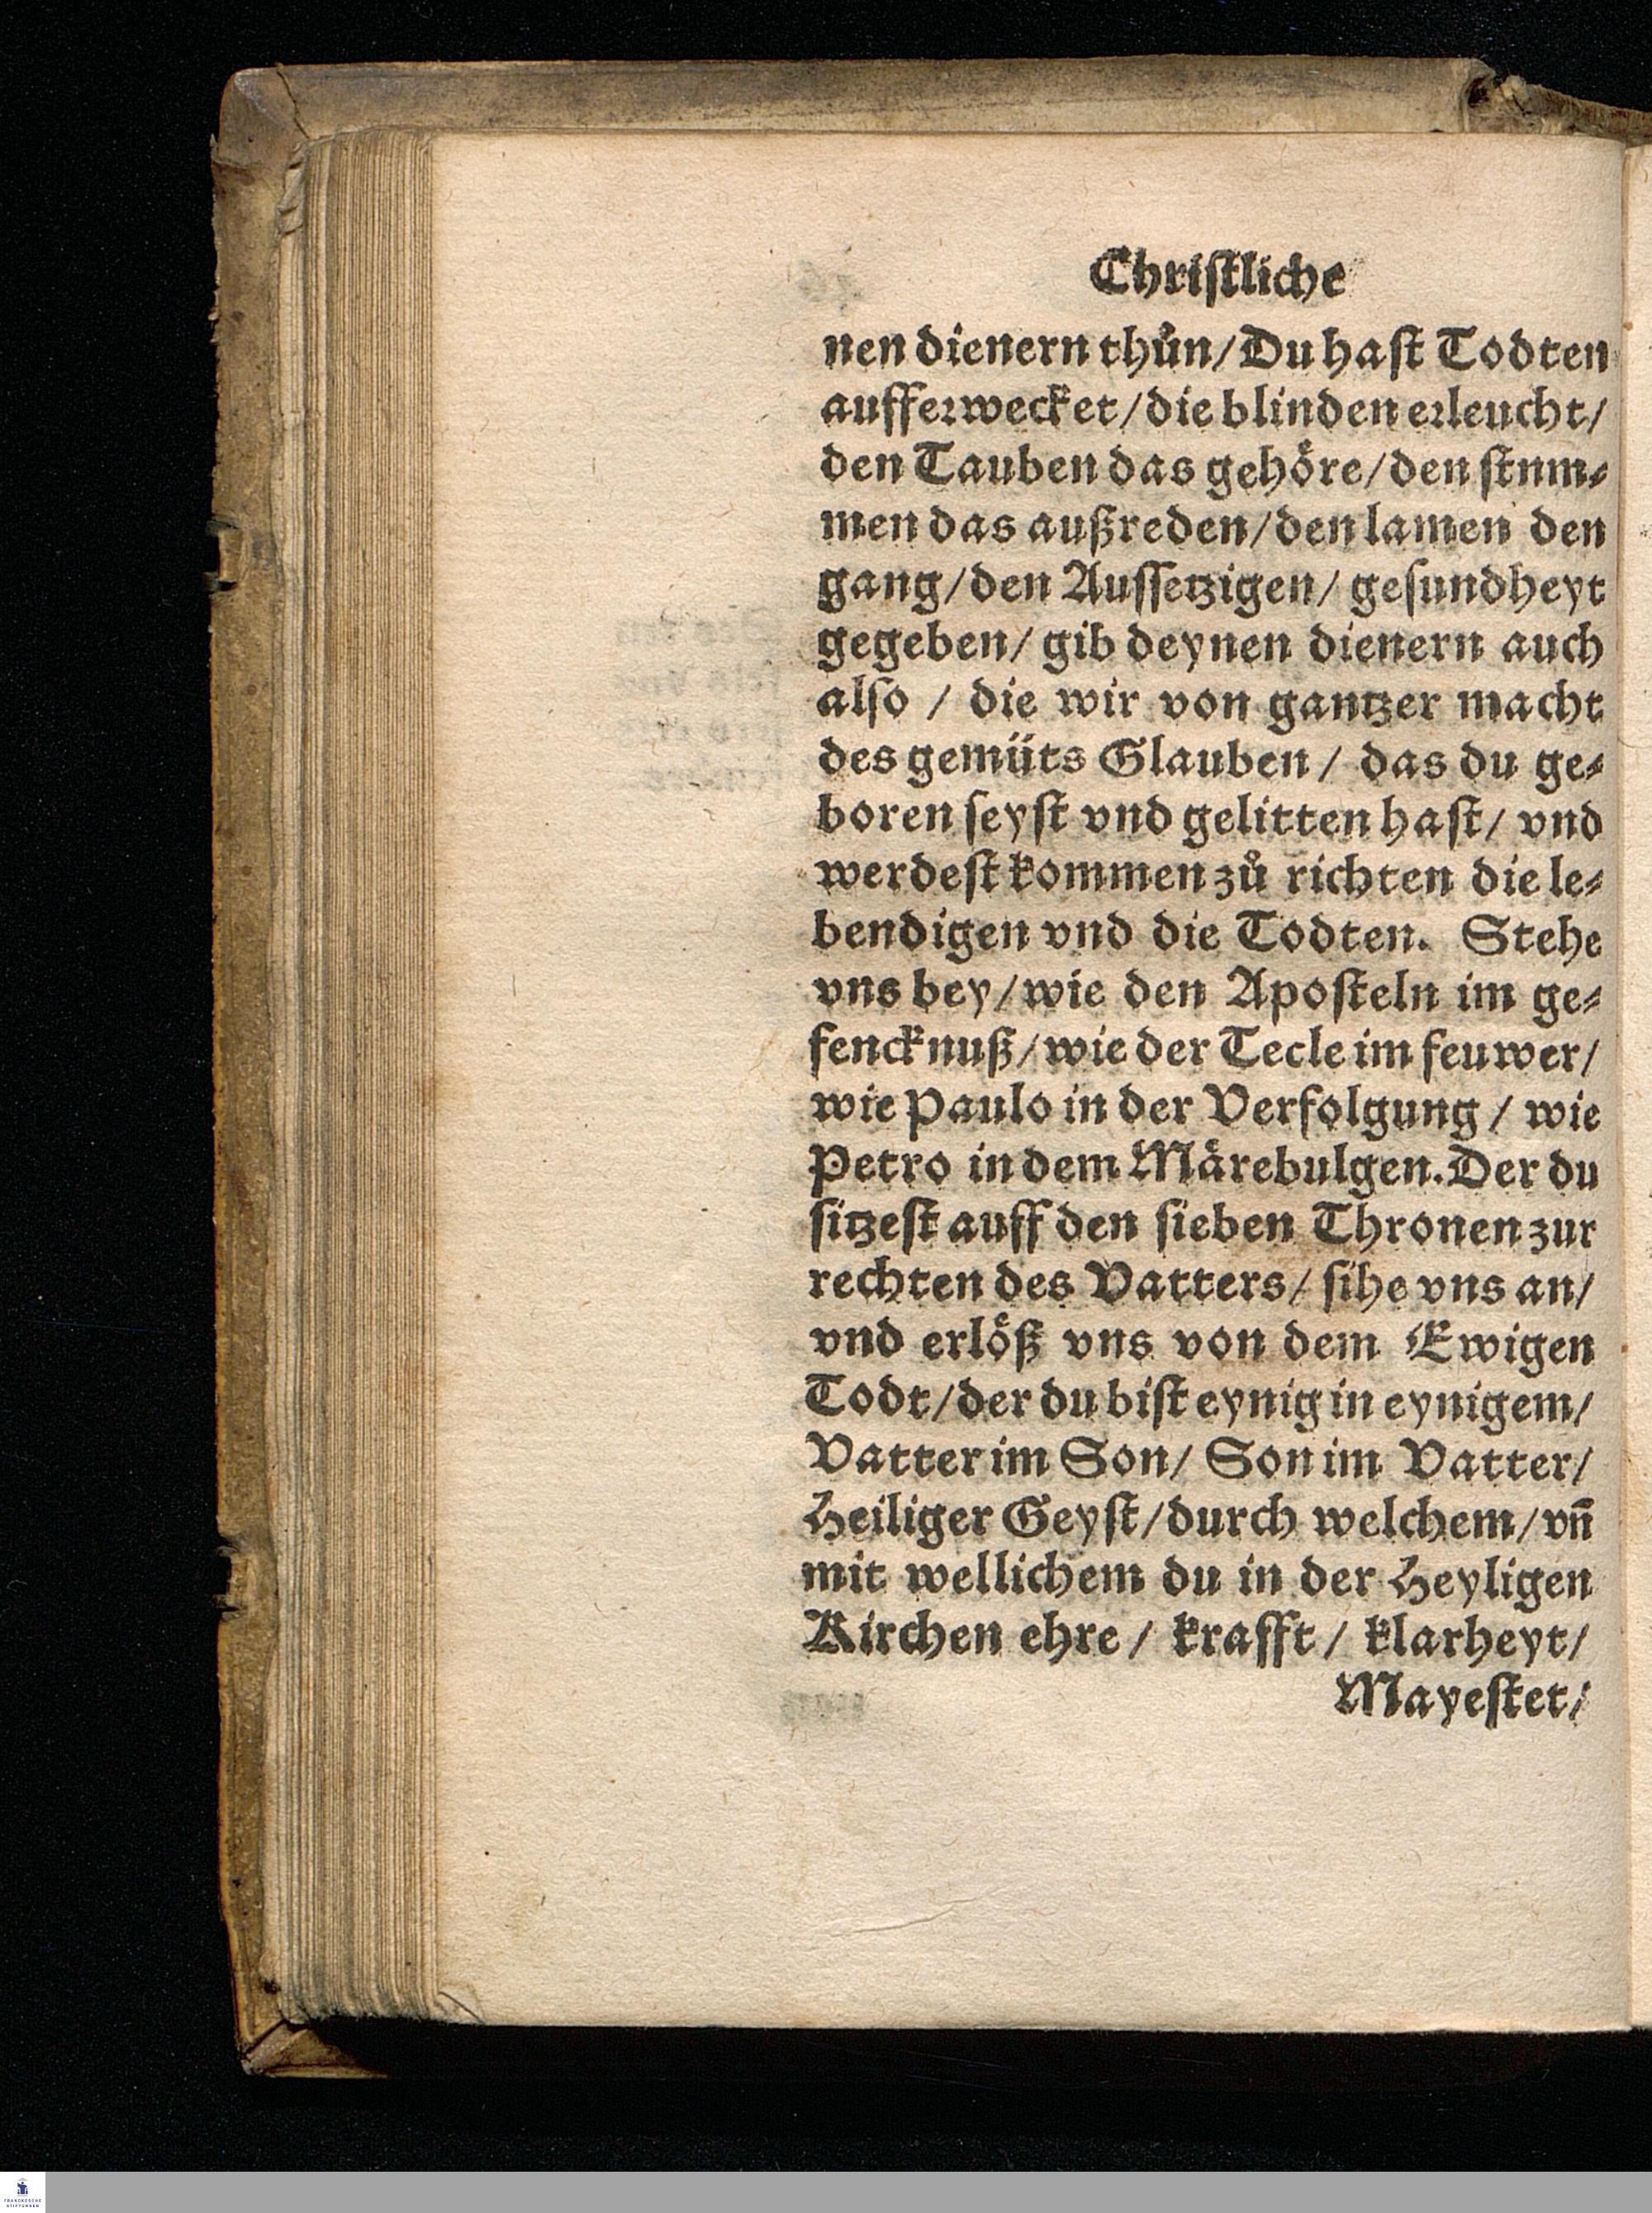 Christliche
nen dienern thůn/ Du hast Todten
aufferwecket/ die blinden erleucht/
den Tauben das gehöre/ den stnm⸗
men das außreden/ den lamen den
gang/ den Aussetzigen/ gesundheyt
gegeben/ gib deynen dienern auch
also / die wir von gantzer macht
des gemüts Glauben / das du ge⸗
boren seyst vnd gelitten hast/ vnd
werdest kommen zů richten die le⸗
bendigen vnd die Todten. Stehe
vns bey/ wie den Aposteln im ge⸗
fencknuß/ wie der Tecle im feuwer/
wie Paulo in der Verfolgung / wie
Petro in dem Märebulgen. Der du
sitzest auff den sieben Thronen zur
rechten des Vatters/ sihe vns an/
vnd erlöß vns von dem Ewigen
Todt/ der du bist eynig in eynigem/
Vatter im Son/ Son im Vatter/
Heiliger Geyst/ durch welchem/ vñ
mit wellichem du in der Heyligen
Kirchen ehre / krafft / klarheyt/
Mayestet/
FRANCKESCHE
STIFTUNGEN